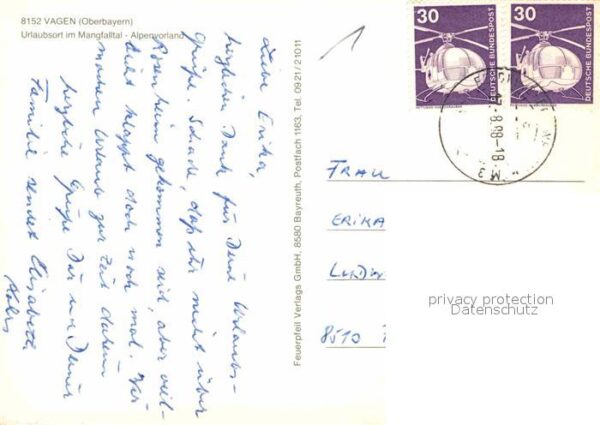 8152 VAGEN (Oberbayern)
Urlaubsort im Mangfalltal - Alpenvorland
Liebe Erika,
herzlichen Dank für Deine Urlaubs-
grüße. Schade, daß ihr nicht über
Rosenheim gekommen seid, aber viel-
leicht klappt doch noch mal. Wir
machen Urlaub zur Zeit daheim
herzliche Grüße Dir und Deiner
Familie sendet Elisabeth
Feuerpfeil Verlags GmbH, 8580 Bayreuth, Postfach 1163, Tel. 0921/21011
30
DEUTSCHE BUNDESPOST
30
DEUTSCHE BUNDESPOST
8.88-18
FRAU
ERIKA
8510
privacy protection
Datenschutz